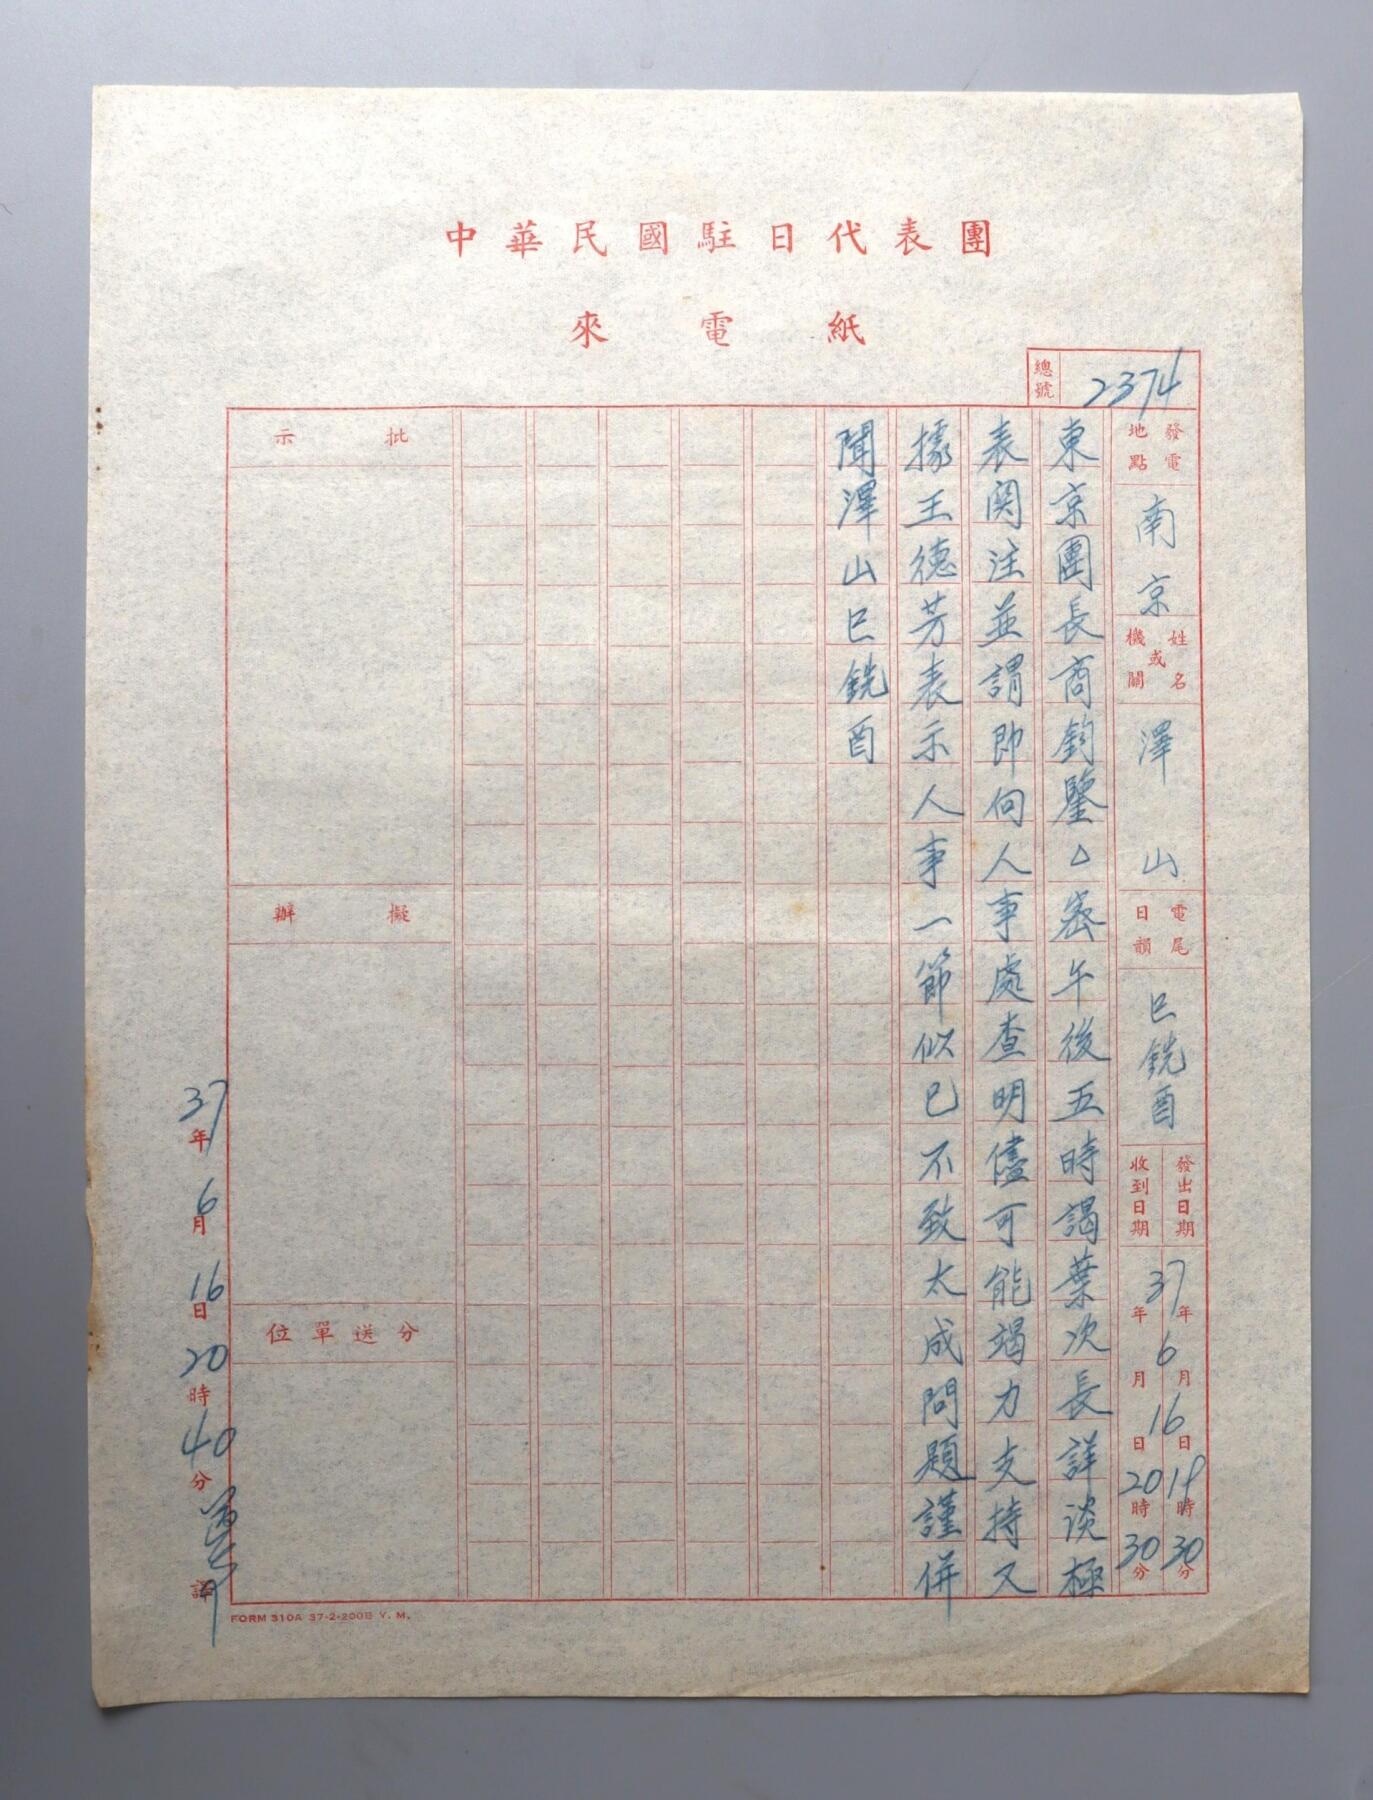 中華民國駐日代表團
來電紙
總號 2374
發電地點 南京
姓名或機關 澤山
電尾日韻 巳銑酉
發出日期 37年6月16日19時30分
收到日期 年月日20時30分
東京團長商鈞鑒△密午後五時謁葉次長詳談極
表関注並謂即向人事處查明儘可能竭力支持又
據王德芳表示人事一節似已不致太成問題謹併
聞澤山巳銑酉
批示
擬辦
分送單位
37年6月16日20時40分 譯
FORM 310A 37-2-200B Y. M.